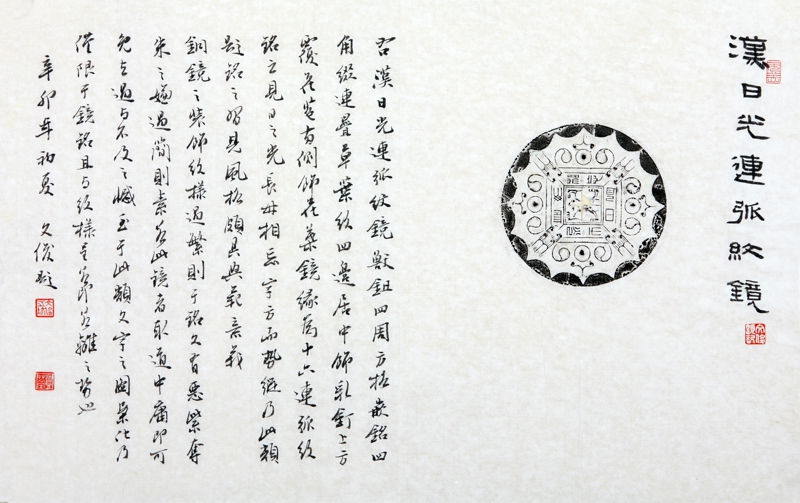 漢日光連弧紋鏡
右漢日光連弧紋鏡獸鈕四周方格嵌銘四
角綴連疊草葉紋四邊居中飾乳釘上方
覆花苞有側飾花葉鏡緣爲十六連弧紋
銘云見日之光長毋相忘字方而勢縱乃此類
題銘之習見風格頗具典范意義
銅鏡之裝飾紋樣過繁則于銘文有惡紫奪
朱之嫌過簡則素然此鏡者取道中庸即可
免去過与不及之憾至于此類文字之圖案化乃
僅限于鏡銘且与紋樣呈若即若離之勢也
辛卯年初夏 文俊題